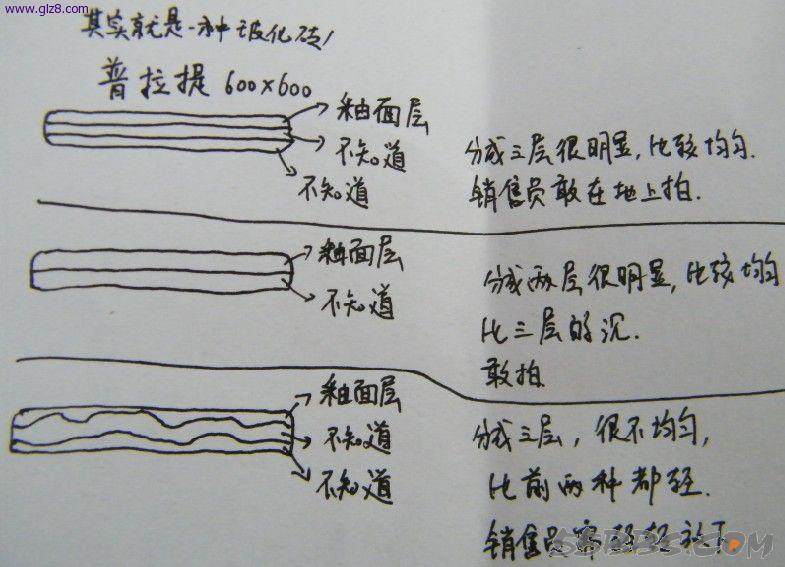 www.glz8.com
其实就是一种玻化砖!
普拉提 600×600
釉面层
不知道
不知道
分成三层很明显,比较均匀.
销售员敢在地上拍.
釉面层
不知道
分成两层很明显,比较均匀
比三层的沉.
敢拍.
釉面层
不知道
不知道
分成三层,很不均匀,
比前两种都轻.
销售员需轻轻放下
55BBS.COM